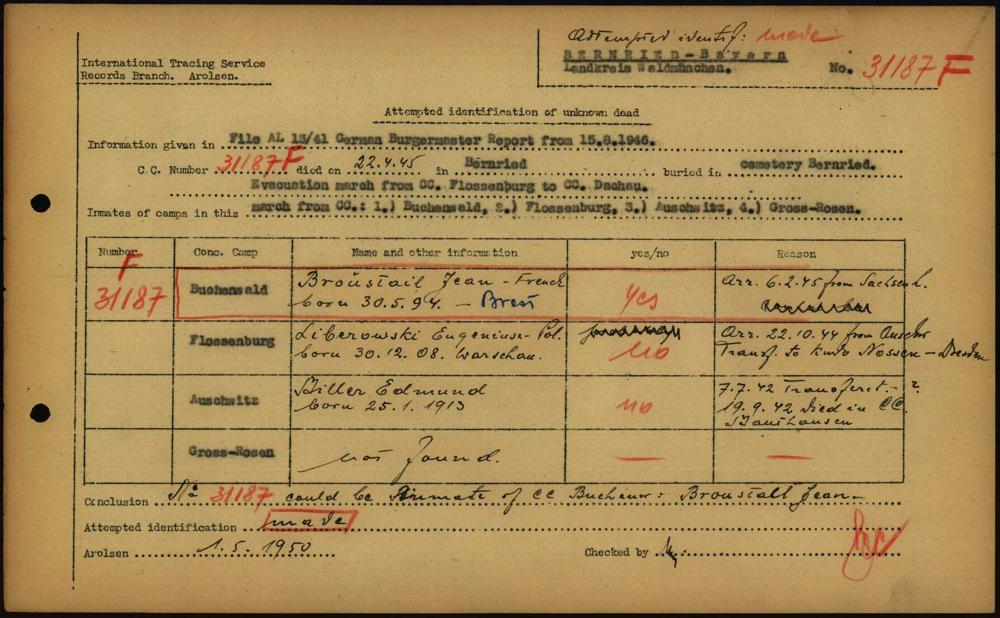 Attempted identif: made
International Tracing Service
Records Branch. Arolsen.
BERNRIED-Bayern
Landkreis Waldmünchen.
No. 31187 F
Attempted identification of unknown dead
Information given in File AL 13/41 German Burgermaster Report from 15.8.1946.
C.C. Number 31187 F died on 22.4.45 in Bernried buried in cemetery Bernried.
Evacuation march from CC. Flossenburg to CC. Dachau.
Inmates of camps in this march from CC.: 1.) Buchenwald, 2.) Flossenburg, 3.) Auschwitz, 4.) Gross-Rosen.
Number Conc. Camp Name and other information yes/no Reason
F
31187 Buchenwald Broustail Jean - French
born 30.5.94. - Brest yes Arr. 6.2.45 from Sachsenh.
Flossenburg Liberowski Eugeniusz - Pol.
born 30.12.08. Warschau. no Arr. 22.10.44 from Auschw
Transf. to Kmdo Nossen - Dresden
Auschwitz Edmund
born 25.1.1913 no 7.7.42 Transferet - ?
19.9.42 died in CC.
Mauthausen
Gross-Rosen not found. — —
Conclusion No 31187 could be inmate of CC Buchenw: Broustall Jean
Attempted identification made
Arolsen 1.5.1950 Checked by